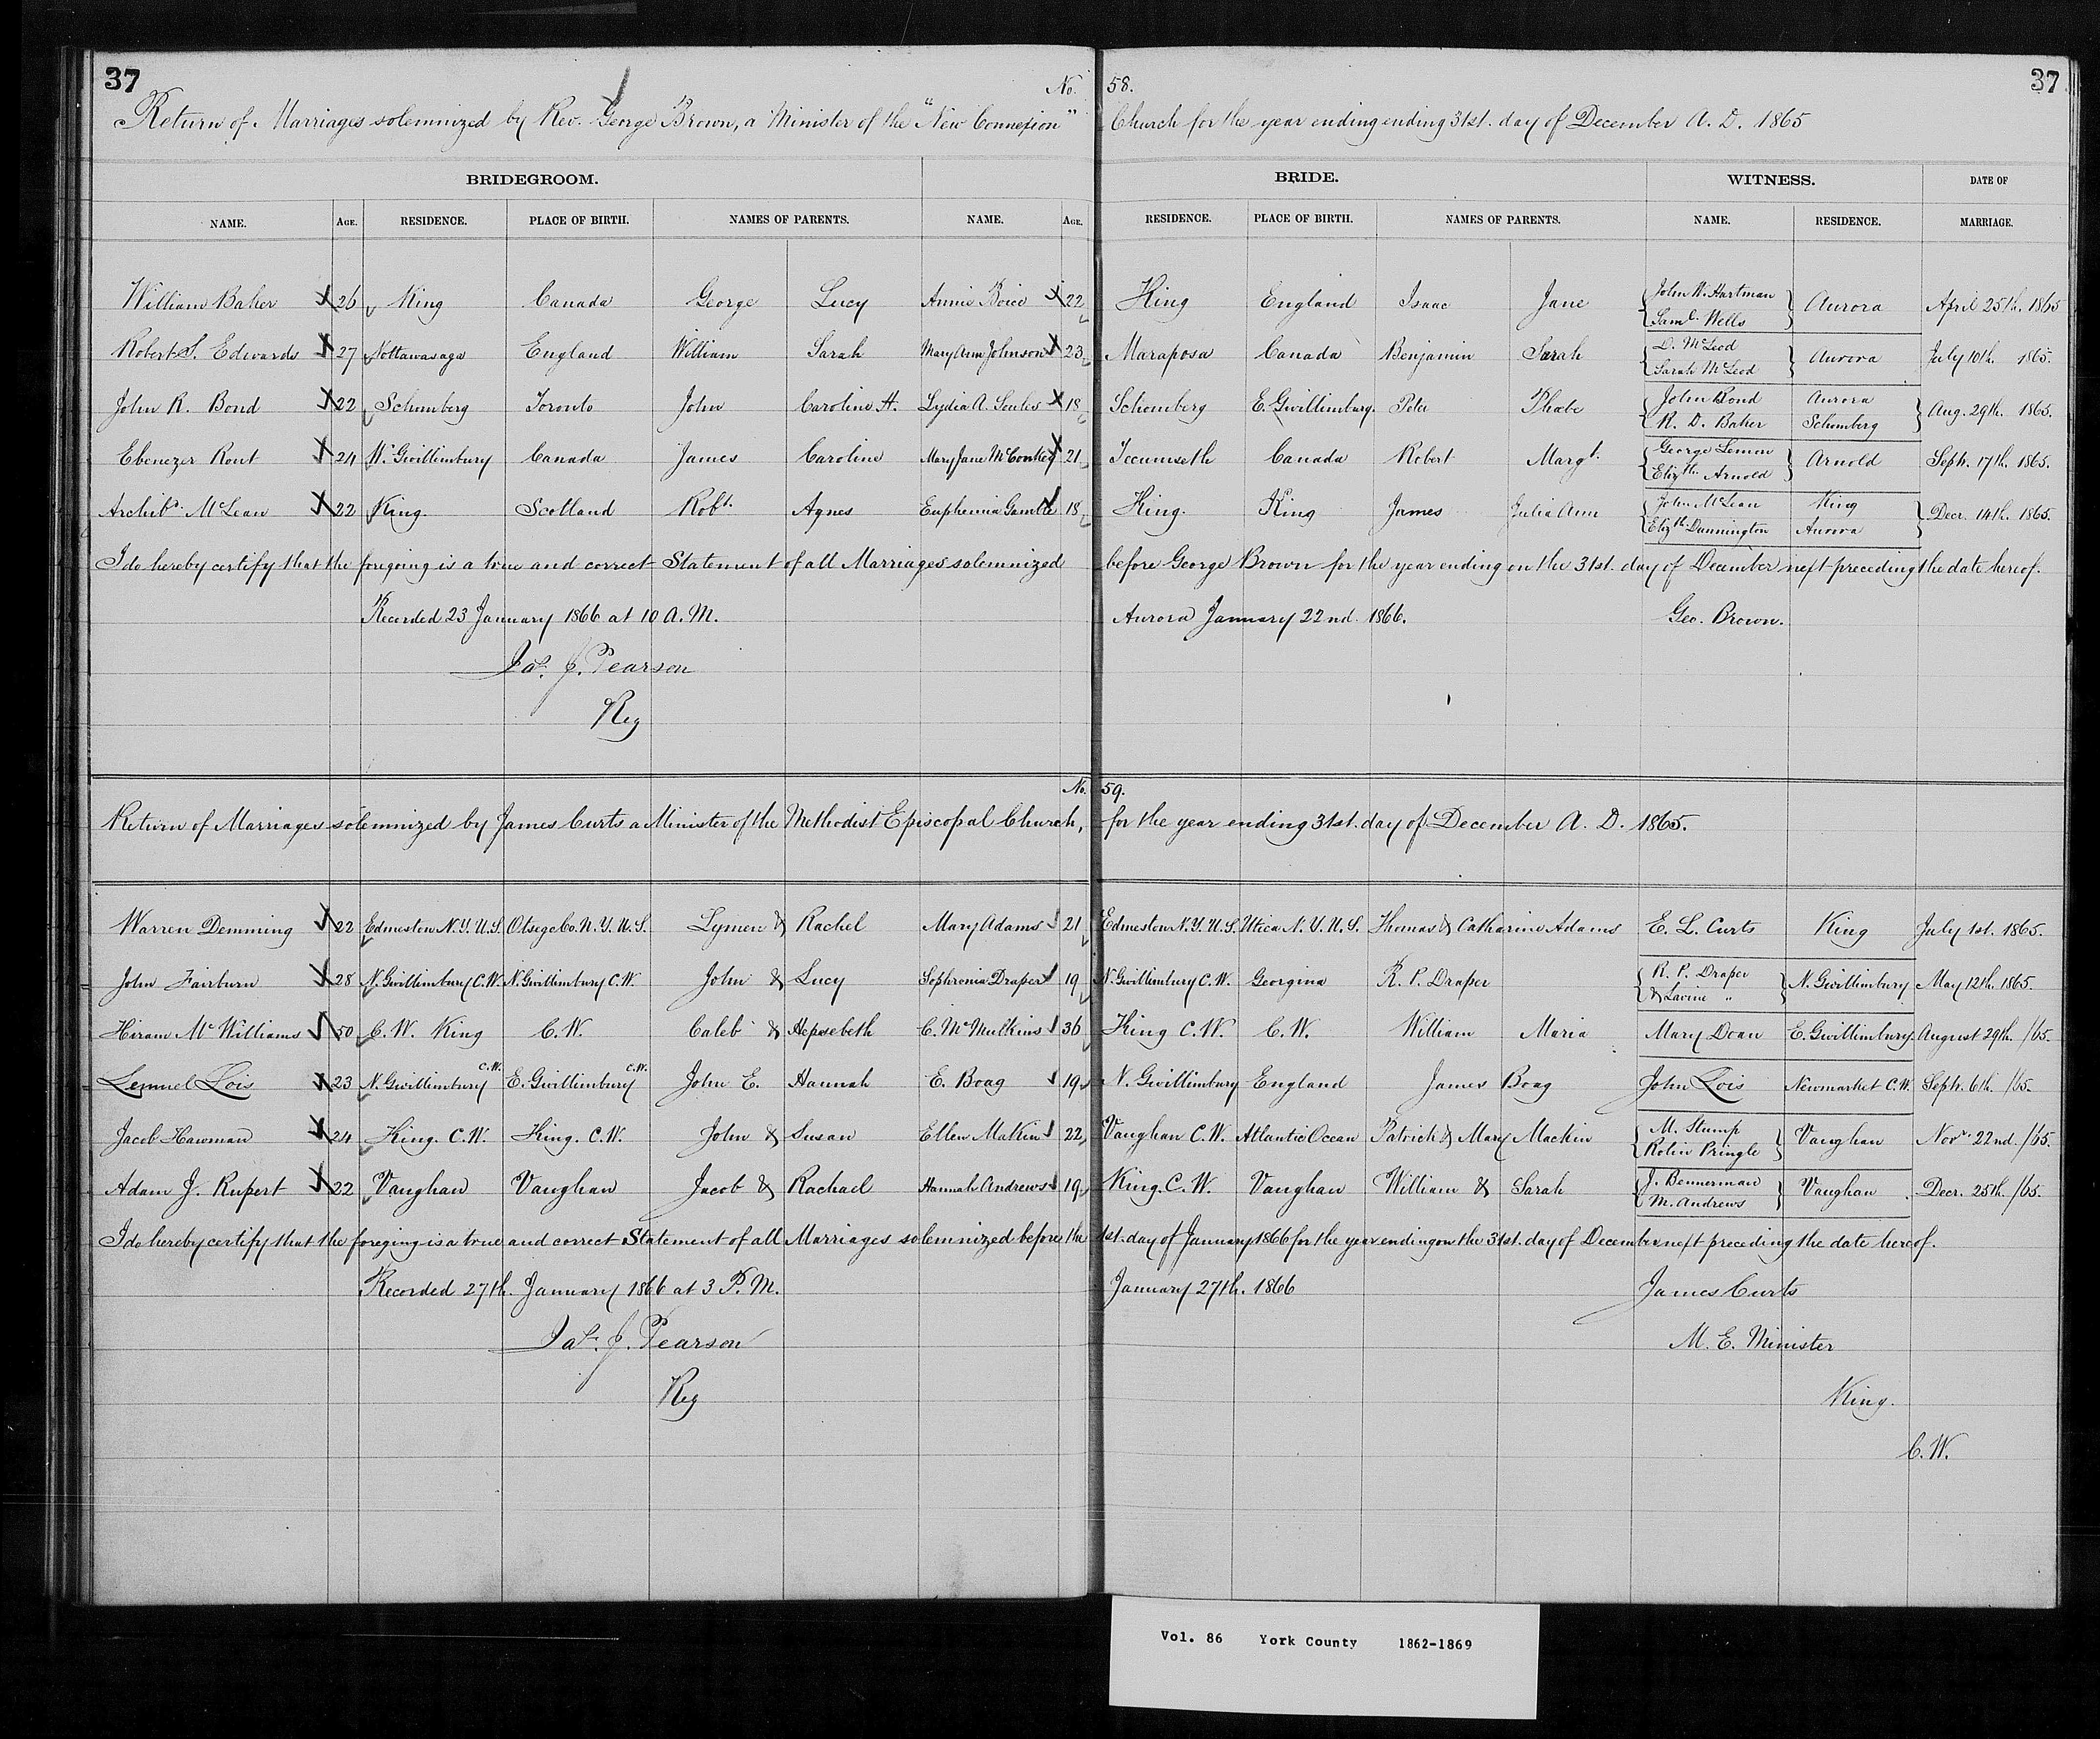 37 No. 58. 37
Return of Marriages solemnized by Rev. George Brown, a Minister of the "New Connexion" Church for the year ending ending 31st. day of December A. D. 1865
BRIDEGROOM. BRIDE. WITNESS. DATE OF
NAME. AGE. RESIDENCE. PLACE OF BIRTH. NAMES OF PARENTS. NAME. AGE. RESIDENCE. PLACE OF BIRTH. NAMES OF PARENTS. NAME. RESIDENCE. MARRIAGE.
William Baker 26 King Canada George Lucy Annie Boice 22 King England Isaac Jane John W. Hartman Saml. Wells Aurora April 25th. 1865
Robert S. Edwards 27 Nottawasaga England William Sarah Mary Ann Johnson 23 Maraposa Canada Benjamin Sarah D. McLeod Sarah McLeod Aurora July 10th. 1865.
John R. Bond 22 Schomberg Toronto John Caroline H. Lydia A. Soules 18 Schomberg E. Gwillimbury. Peter Phœbe John Bond Aurora R. D. Baker Schomberg Aug. 29th. 1865.
Ebenezer Rout 24 W. Gwillimbury Canada James Caroline Mary Jane McConkey 21 Tecumseth Canada Robert Margt. George Lemon Elizth. Arnold Arnold Sept. 17th. 1865.
Archibd. McLean 22 King Scotland Robt. Agnes Euphemia Gamble 18 King. King James Julia Ann John McLean King Elizth. Dunnington Aurora Decr. 14th. 1865.
I do hereby certify that the foregoing is a true and correct Statement of all Marriages solemnized before George Brown for the year ending on the 31st. day of December next preceding the date hereof.
Recorded 23 January 1866 at 10 A. M. Aurora January 22nd. 1866. Geo. Brown.
Jas. J. Pearson
Reg
No. 59.
Return of Marriages solemnized by James Curts a Minister of the Methodist Episcopal Church, for the year ending 31st. day of December A. D. 1865.
Warren Demming 22 Edmeston N.Y. U.S. Otsego Co. N.Y. U.S. Lymen & Rachel Mary Adams 21 Edmeston N.Y. U.S. Utica N.Y. U.S. Thomas & Catharine Adams E. L. Curts King July 1st. 1865.
John Fairburn 28 N. Gwillimbury C.W. N. Gwillimbury C.W. John & Lucy Sophronia Draper 19 N. Gwillimbury C.W. Georgina R. P. Draper R. P. Draper & Lavine " N. Gwillimbury May 12th. 1865.
Hiram McWilliams 50 C.W. King C.W. Caleb & Hepsebeth C. McMulkins 36 King C.W. C.W. William Maria Mary Doan E. Gwillimbury. August 29th. /65.
Lemuel Lois 23 N. Gwillimbury C.W. E. Gwillimbury C.W. John E. Hannah E. Boag 19 N. Gwillimbury England James Boag John Lois Newmarket C.W. Sept. 6th. /65.
Jacob Hawman 24 King. C.W. King. C.W. John & Susan Ellen Matkin 22 Vaughan C.W. Atlantic Ocean Patrick & Mary Mackin M. Stump Rolin Pringle Vaughan Novr. 22nd. /65.
Adam J. Rupert 22 Vaughan Vaughan Jacob & Rachael Hannah Andrews 19 King. C.W. Vaughan William & Sarah J. Bennerman M. Andrews Vaughan Decr. 25th. /65.
I do hereby certify that the foregoing is a true and correct Statement of all Marriages solemnized before the 1st. day of January 1866 for the year ending on the 31st. day of December next preceding the date hereof.
Recorded 27th. January 1866 at 3 P. M. January 27th. 1866 James Curts
Jas. J. Pearson M. E. Minister
Reg King.
C. W.
Vol. 86 York County 1862-1869